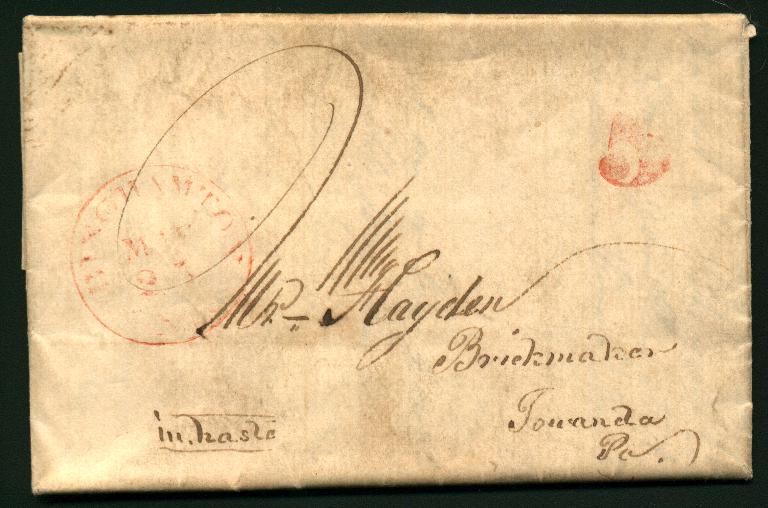 BINGHAMTON
5
Mr- Hayden
Brickmaker
Towanda
Pa.
in haste